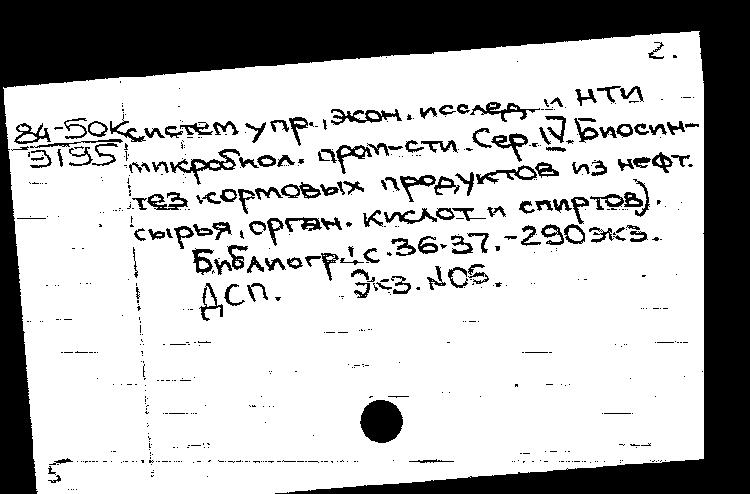 2.
84-50к систем упр., экон. исслед. и НТИ
3195 микробиол. пром-сти. Сер. IV. Биосин-
тез кормовых продуктов из нефт.
сырья, орган. кислот и спиртов).
Библиогр.: с. 36-37. - 290 экз.
ДСП. Экз. №05.
5